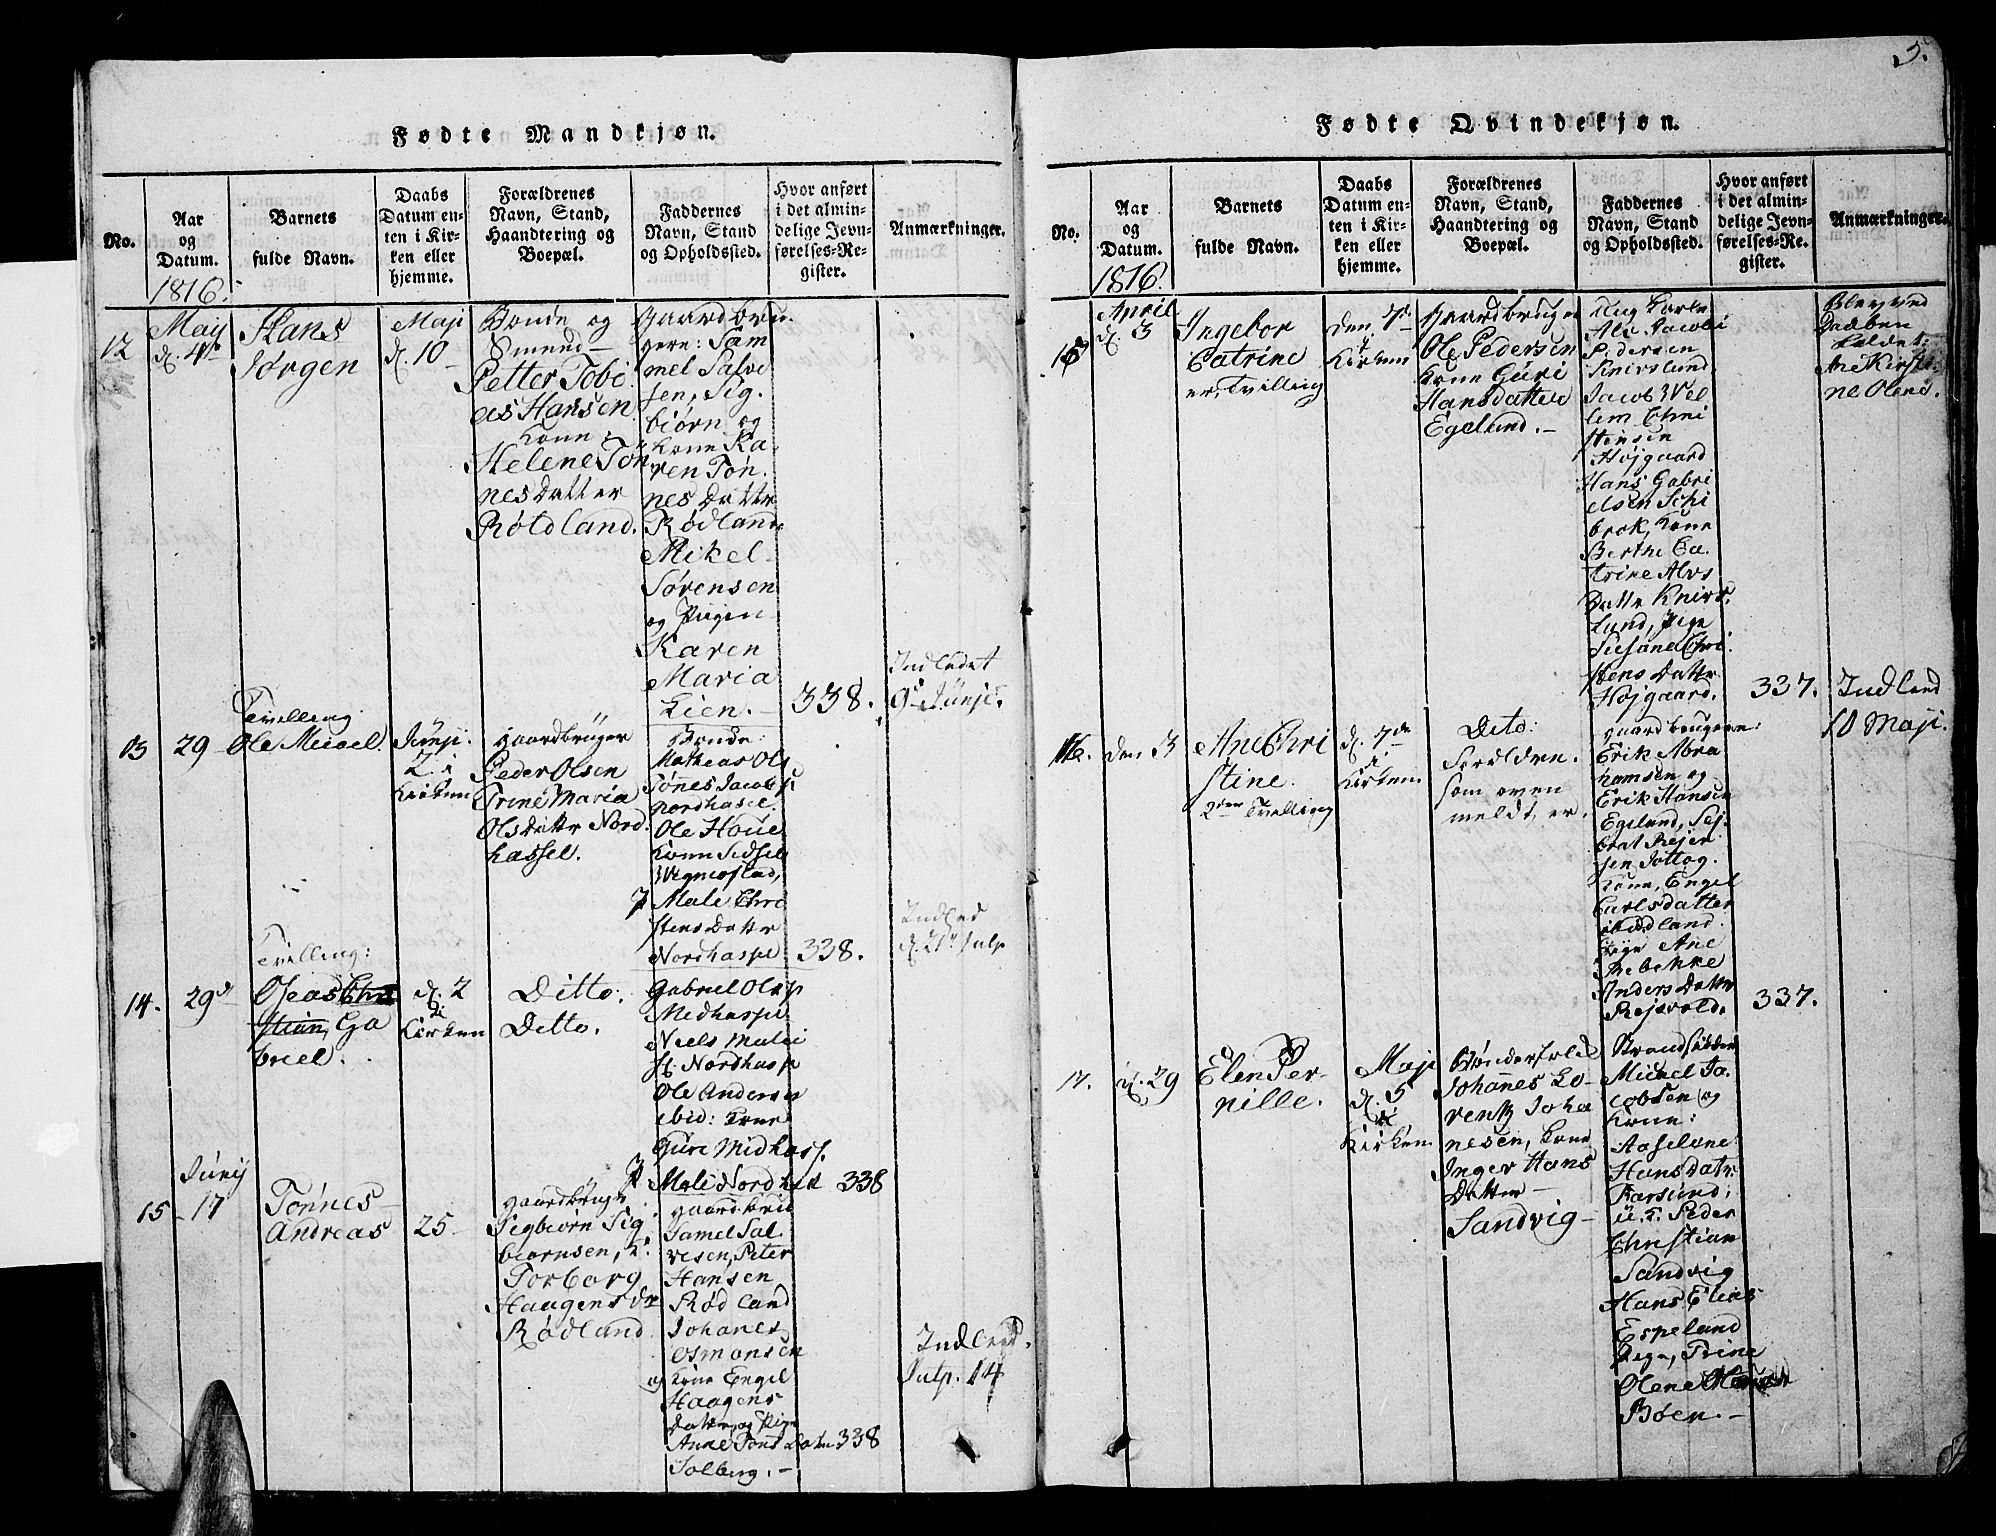 5.
Fødte Mandkjøn.
No.
Aar
og
Datum.
1816.
Barnets
fulde Navn.
Daabs
Datum en-
ten i Kir-
ken eller
hjemme.
Forældrenes
Navn, Stand,
Haandtering og
Boepæl.
Faddernes
Navn, Stand
og Opholdssted.
Hvor anført
i det almin-
delige Jevn-
førelses-Re-
gister.
Anmærkninger.
12
May
d. 4de
Hans
Jørgen
Maji
d. 10
Bonde og
Smend
Petter Tobi
as Hansen
Kone
Helene Tøn
nesdatter
Røtdland.
Gaardbru.
gere: Sam
mel Salve
sen, Sig.
biørn og
Kone Ka-
ren Tøn.
nes Dattr
Rødland
Mikel
Sørensen
og Pigen
Karen
Maria
Lien.
338.
Indledet
9de Junji.
13
29
Tvelling
Ole Mickel.
Junji.
2. i
Kirken
Gaardbruger
Peder Olsen
Trine Maria
Ols Dattr Nord
hassel.
Bonde:
Mathias Ols
Tønes Jacobs
Nordhasel.
Ole
Kone Sidsel
Male Chri
stens Dattr
Nordhassel
338.
Indled
d. 21de Julp
14.
29d
Tvelling:
Oleas Chri
stian, Ga
briel.
d. 2
i
Kirken
Ditto.
Ditto.
Gabriel Ols
Midhassel
Niels
Nordhass
Ole Anders
ibid: Kone
Guri Midhass.
Mali Nordhas
338
15
Junij
17
Tønnes
Andreas
25
Gaardbruger
Sigbiørn Sig
biørnsen, K:
Torborg
Haagensdr
Rødland
Gaardbru
Samel Sal
vesen, Peter
Hansen
Rødland
Johanes
Osmonsen
og Kone Engel
Haagens
Datter, og Pige
Anne Tønes Datr
Solberg.
338
Indled.
Julp. 14
Fødte Qvindekjøn.
No.
Aar
og
Datum.
1816.
Barnets
fulde Navn.
Daabs
Datum en-
ten i Kir-
ken eller
hjemme.
Forældrenes
Navn, Stand,
Haandtering og
Boepæl.
Faddernes
Navn, Stand
og Opholdssted.
Hvor anført
i det almin-
delige Jevn-
førelses-Re-
gister.
Anmærkninger.
15
April
d. 3
Ingebor
Catrine
er, Tvilling
den 7de
i
Kirken
Gaardbruger
Ole Pedersen
Kone Guri
Hansdatter
Egelund.
Ung Karle
Als Jacobi
Pedersen
Knivslund.
Jacob Wel
lem Chri
stensen
Højgaard
Hans Gabri
elsen Schi
brok, Kone
Berthe Ca.
trine Alvs
Dattr Knivs
lund, Pige
Susane Chri.
stens Dattr
Højgaard.
337.
Blev ved
Daaben
holdet:
Ane Kirsti-
ne Olend.
Indled
10 Maji.
16.
den 3
Ane Chri
stine.
2den Tvelling
d. 7de
i
Kirken
Dito:
Foreldren.
som oven
meldt, er.
Gaardbrugere:
Erik Abra
hamsen og
Erik Hansen
Egeland, Sej-
brat Rejer
sen Jottog.
Kone, Engel
Carlsdatter
Pige Ane
Rebekke
Anders Dattr
Rejsvold.
337.
17.
d. 29
Elen Per-
nille.
Maji
d. 5
i
Kirken
Bønderfolk
Johannes Lo-
rentz Joha
nesen, Kone
Inger Hans
Datter
Sandvig
Strandsidder
Mickel Ja.
cobsen og
Kone:
Aaselene
Hans datr
Farsund,
u. k. Peder
Christian
Sandvig
Hans Elias
Espeland
Pige, Trine
Olene
Bøen.